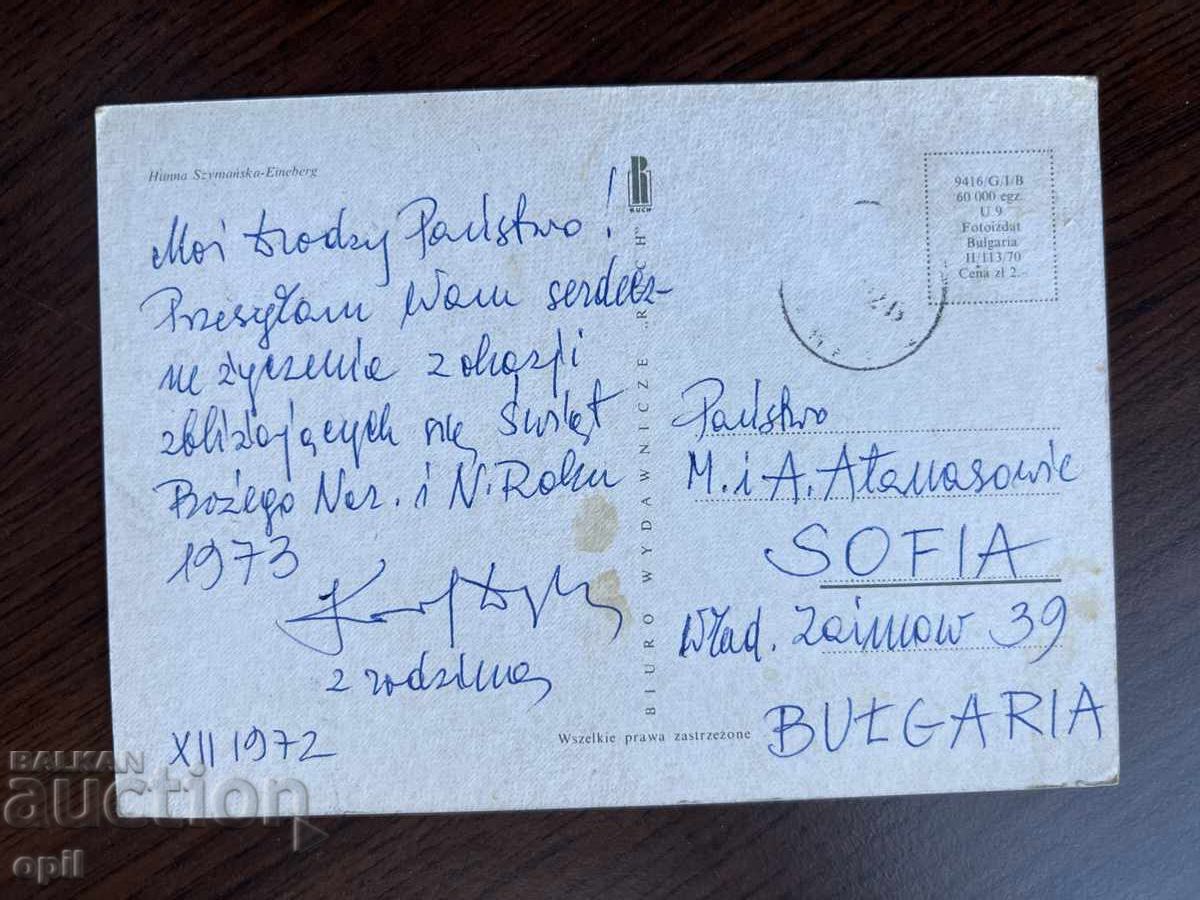 Hanna Szymańska-Eineberg
Moi Drodzy Państwo!
Przesyłam Wam serdecz-
ne życzenia z okazji
zbliżających się Świąt
Bożego Nar. i N. Roku
1973
z rodziną
XII 1972
RUCH
BIURO WYDAWNICZE „RUCH”
Wszelkie prawa zastrzeżone
9416/G/I/B
60 000 egz.
U 9
Fotoizdat
Bulgaria
II/113/70
Cena zł 2.-
Państwo
M. i A. Atanasowie
SOFIA
Wład. Zaimow 39
BUŁGARIA
BALKAN
auction
opil